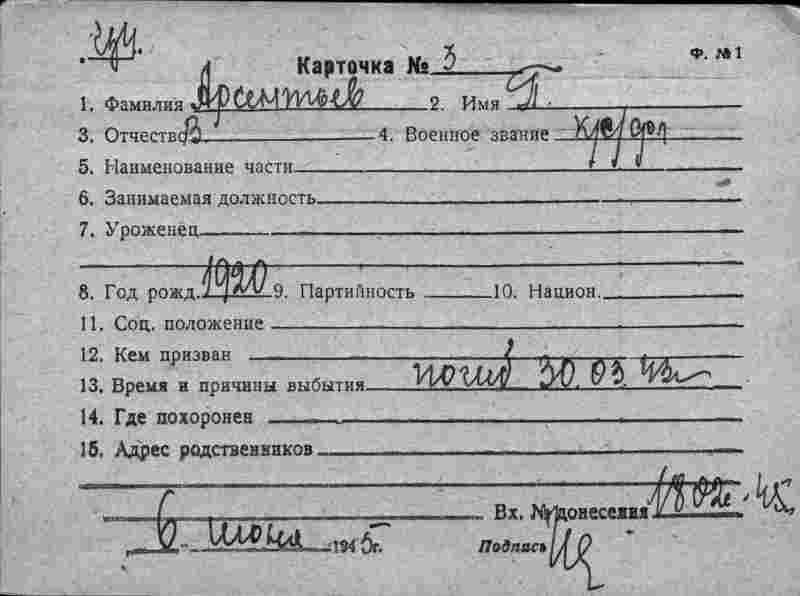 Карточка № 3 Ф. №1
1. Фамилия Арсентьев 2. Имя П.
3. Отчество В. 4. Военное звание
5. Наименование части
6. Занимаемая должность
7. Уроженец
8. Год рожд. 1920 9. Партийность 10. Национ.
11. Соц. положение
12. Кем призван
13. Время и причины выбытия погиб 30.03.43г
14. Где похоронен
15. Адрес родственников
Вх. № донесения 1802с-45
6 июня 1945г. Подпись